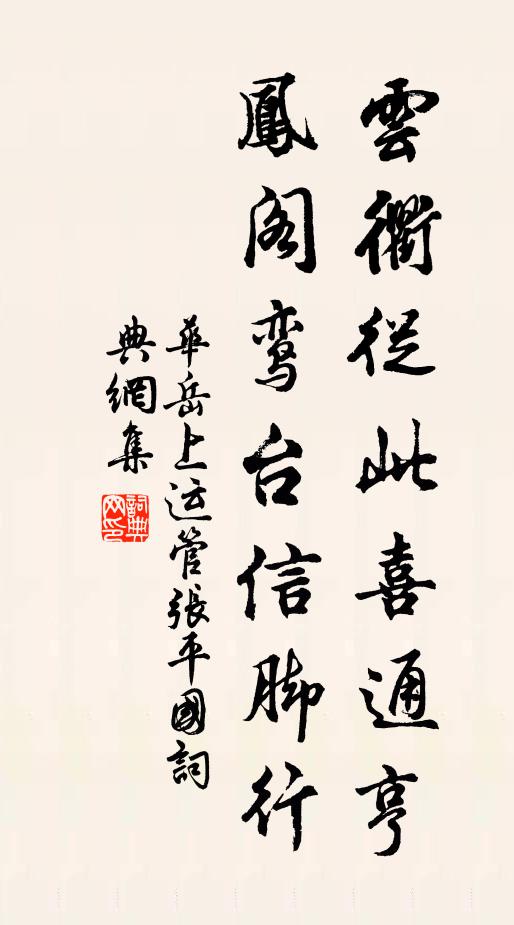 雲衢從此喜通亨
鳳阁鸾台信脚行
華岳上运管張平國詞
典網集
詞典网印